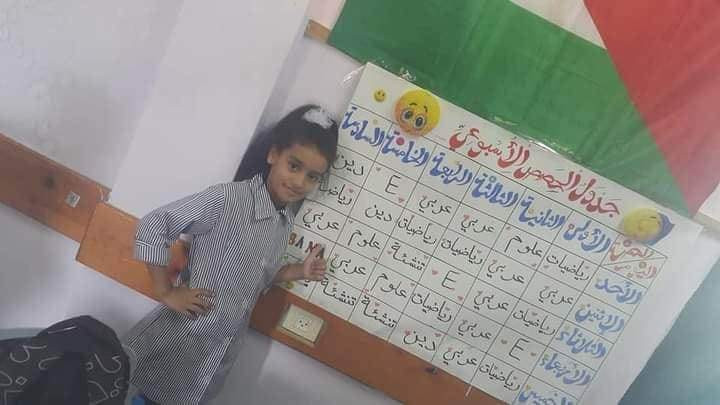 جدول الحصص الأسبوعي
الحصص الأولى الثانية الثالثة الرابعة الخامسة السادسة
الأحد رياضيات علوم عربي عربي E دين
الإثنين عربي عربي رياضيات رياضيات دين رياضيات
الثلاثاء رياضيات عربي E تنشئة علوم عربي
الأربعاء E عربي رياضيات علوم عربي
الخميس عربي رياضيات عربي دين تنشئة تنشئة